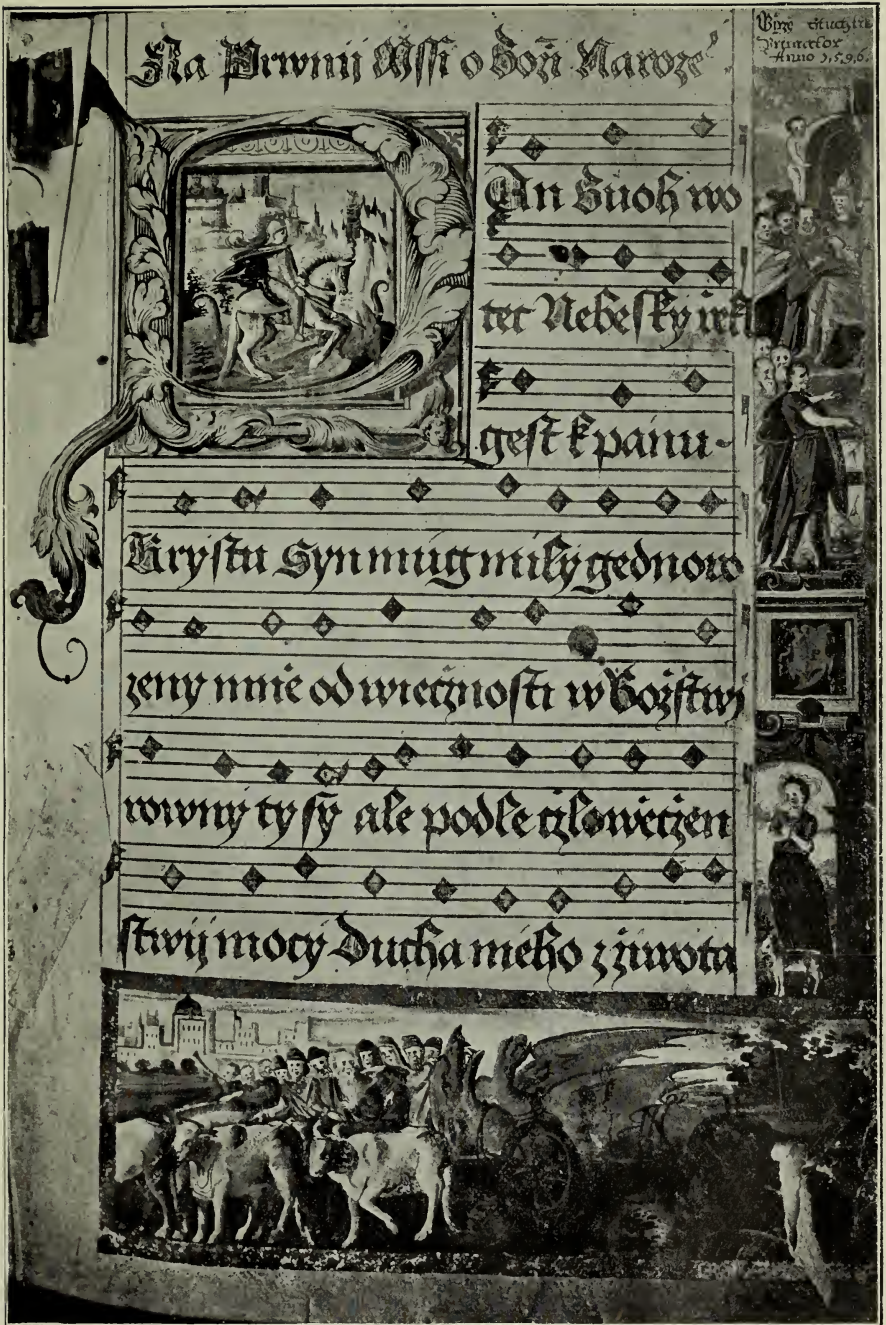 Na Prwnij Mssi o Boži Naroze
Anno 1.5.9.6.
PAn Buoh wo
tec Nebesky irkl
gest k panu
Krystu Syn mug mily gednoro
zeny mnie od wiecznosti w Bozstwj
rowny ty sy ale podle czlowieczen
stwij mocy Ducha meho z ziwota